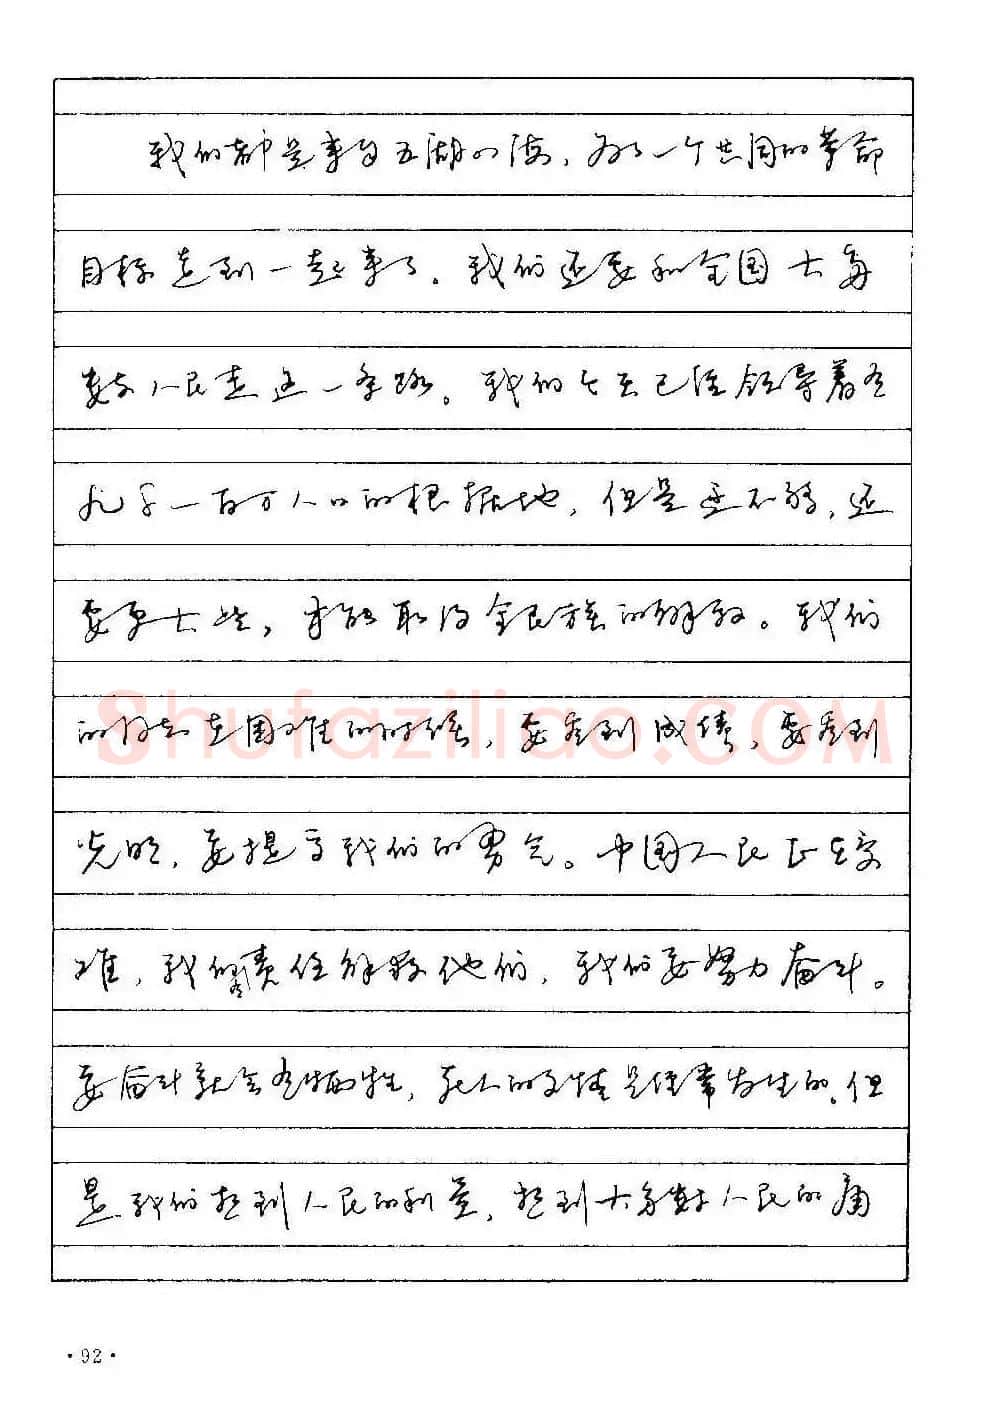 我们都是来自五湖四海，为了一个共同的革命
目标走到一起来了。我们还要和全国大多
数人民走这一条路。我们今天已经领导着有
九千一百万人口的根据地，但是还不够，还
要更大些，才能取得全民族的解放。我们
的同志在困难的时候，要看到成绩，要看到
Shufaziliao.COM
光明，要提高我们的勇气。中国人民正在受
难，我们有责任解救他们，我们要努力奋斗。
要奋斗就会有牺牲，死人的事情是经常发生的。但
是我们想到人民的利益，想到大多数人民的痛
·92·